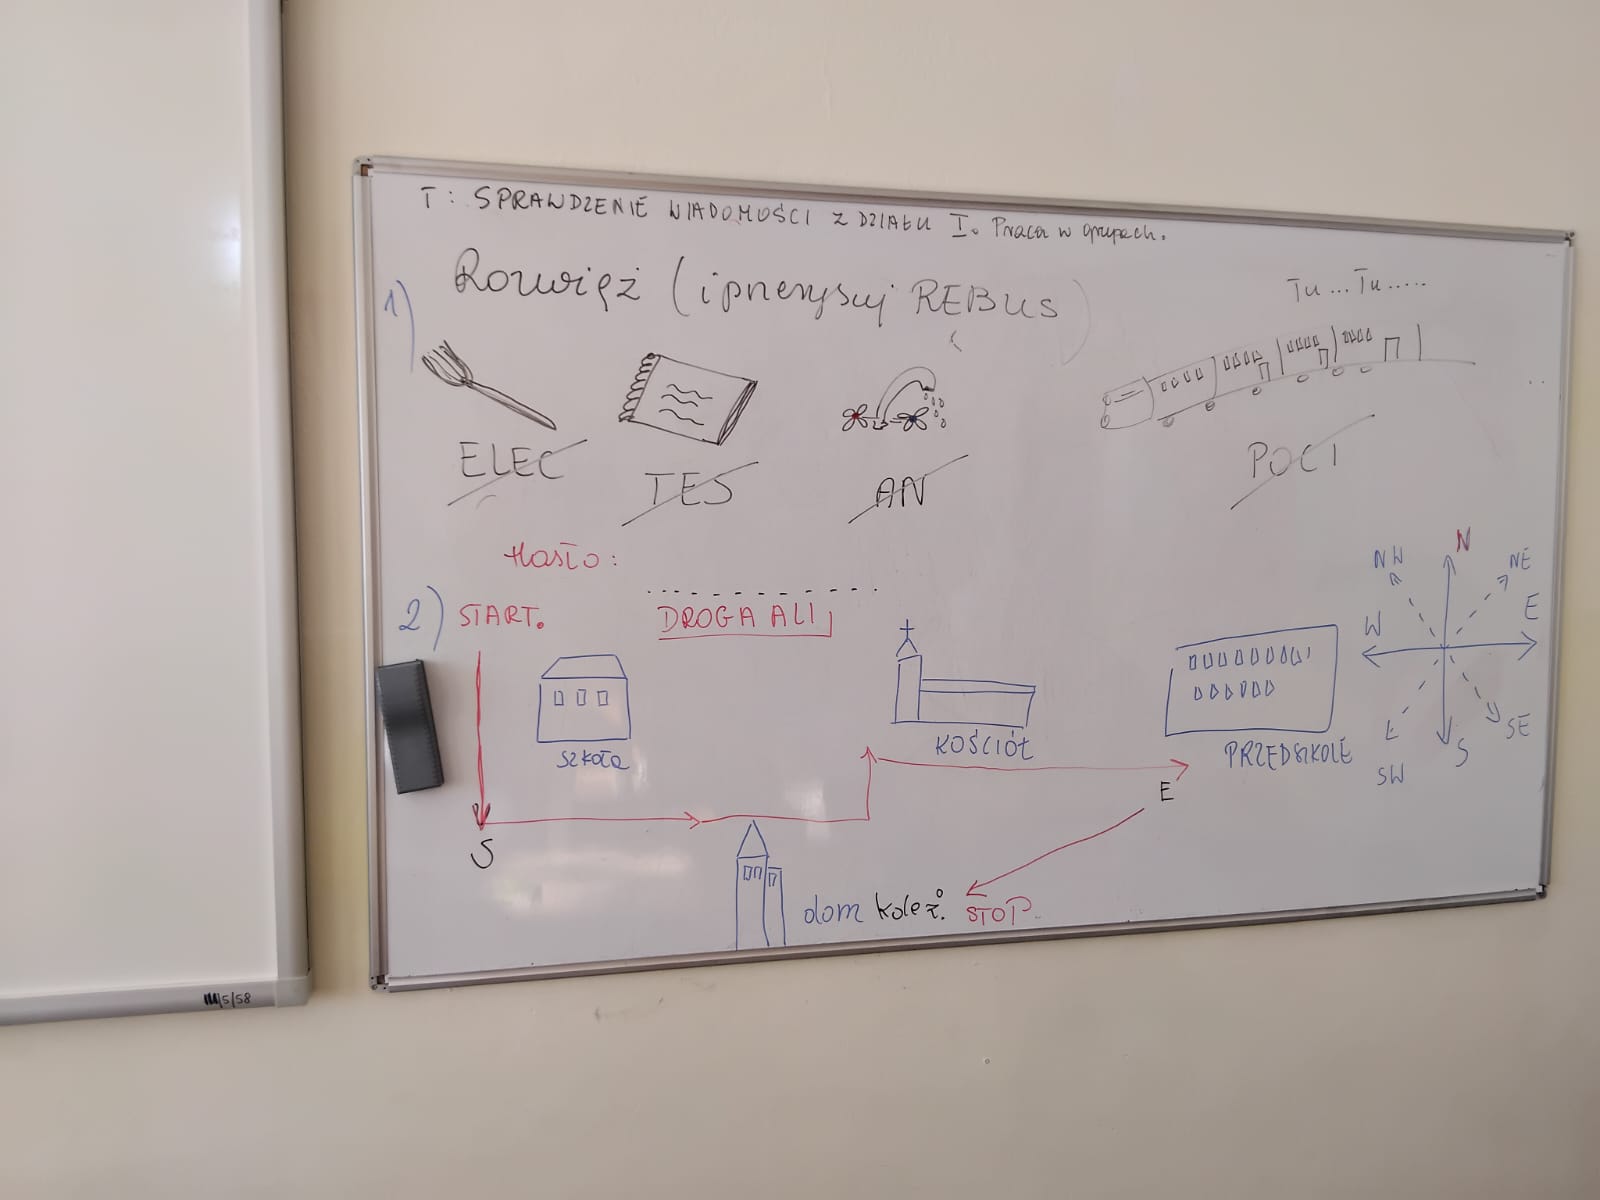 T: SPRAWDZENIE WIADOMOŚCI Z DZIAŁU I. Praca w grupach.
1) Rozwiąż (i przerysuj REBUS)
Tu...Tu.....
ELEC
TES
AN
POCI
Hasło:
2) START.
DROGA ALI
SZKOŁA
KOŚCIÓŁ
PRZEDSZKOLE
N
NE
E
SE
S
SW
W
NW
S
E
dom koleż. STOP.
5/58